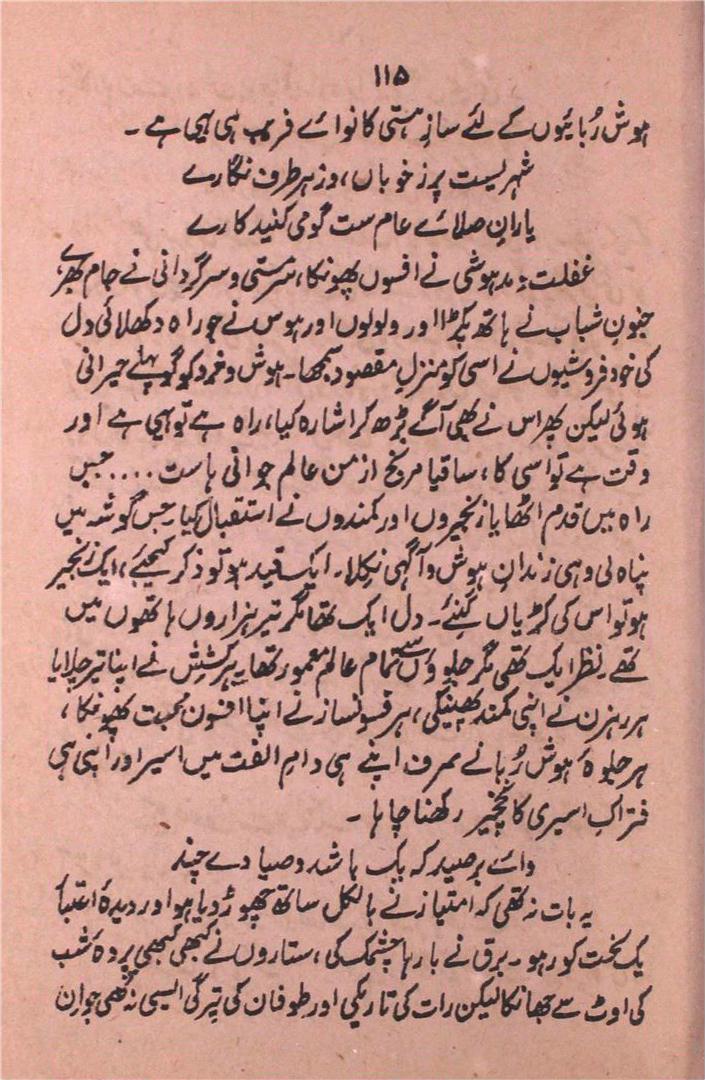 ۱۱۵
ہوش رُبائیوں کے لئے سازِ ہستی کا نوائے فریب ہی یہی ہے۔
شہریست پر ز خوباں، وز ہر طرف نگارے
یاران صلائے عام ست گو می کنید کارے
غفلت و مدہوشی نے افسوں پھونکا، سرمستی و سرگردانی نے جام بھرے،
جنونِ شباب نے ہاتھ پکڑا اور ولولوں اور ہوس نے جو راہ دکھلائی دل
کی خود فروشیوں نے اسی کو منزلِ مقصود سمجھا۔ ہوش و خرد کو گو پہلے حیرانی
ہوئی لیکن پھر اس نے بھی آگے بڑھ کر اشارہ کیا، راہ ہے تو یہی ہے اور
وقت ہے تو اسی کا، ساقیا مرنج از من عالم جوانی ہاست .... جس
راہ میں قدم اٹھایا زنجیروں اور کمندوں نے استقبال کیا۔ جس گوشہ میں
پناہ لی وہی زندانِ ہوش و آگہی نکلا۔ ایک قید ہو تو ذکر کیجئے، ایک زنجیر
ہو تو اس کی کڑیاں گنئے۔ دل ایک تھا مگر تیر ہزاروں ہاتھوں میں
تھے۔ نظر ایک تھی مگر جلووں سے تمام عالم معمور تھا۔ ہر کشش نے اپنا تیر چلایا
ہر رہزن نے اپنی کمند پھینکی، ہر فسونساز نے اپنا افسون محبت پھونکا،
ہر جلوۂ ہوش رُبا نے صرف اپنے ہی دامِ الفت میں اسیر اور اپنی ہی
فتراکِ اسیری کا نخچیر رکھنا چاہا۔
وائے بر صید کہ یک باشد و صیادے چند
یہ بات نہ تھی کہ امتیاز نے بالکل ساتھ چھوڑ دیا ہو اور دیدۂ اعتبا
یک لخت کور ہو۔ برق نے بارہا چشمک کی، ستاروں نے کبھی کبھی پردۂ شب
کی اوٹ سے جھانکا لیکن رات کی تاریکی اور طوفان کی تیرگی ایسی نہ تھی جو ان